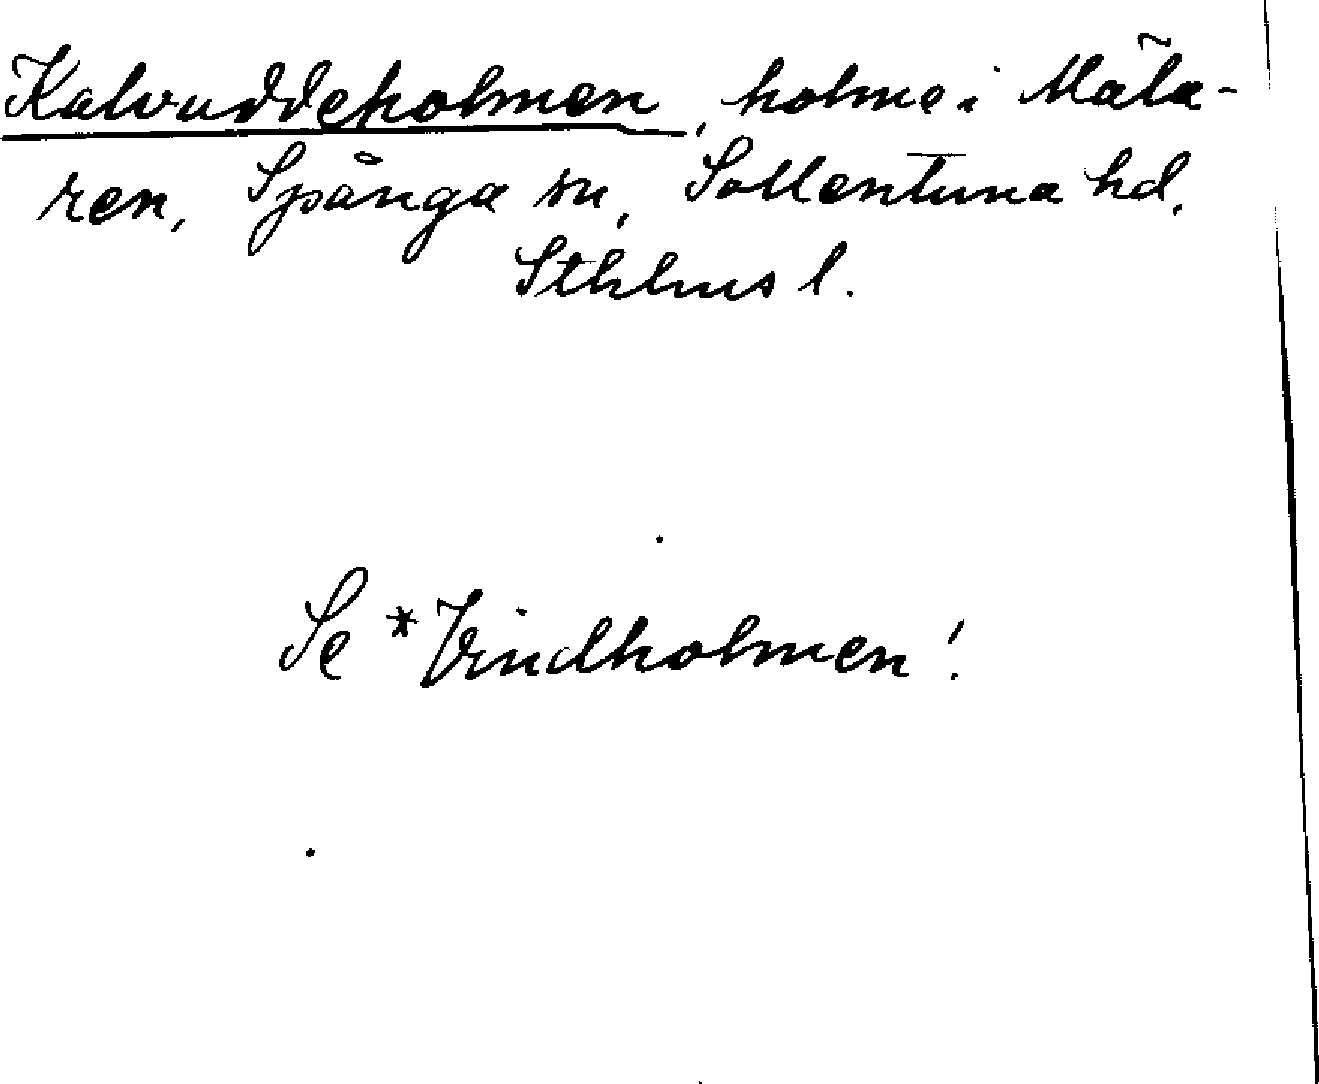 Kalvuddeholmen, holme i Mäla-
ren, Spånga sn, Sollentuna hd,
Sthlms l.
Se *Vindholmen!